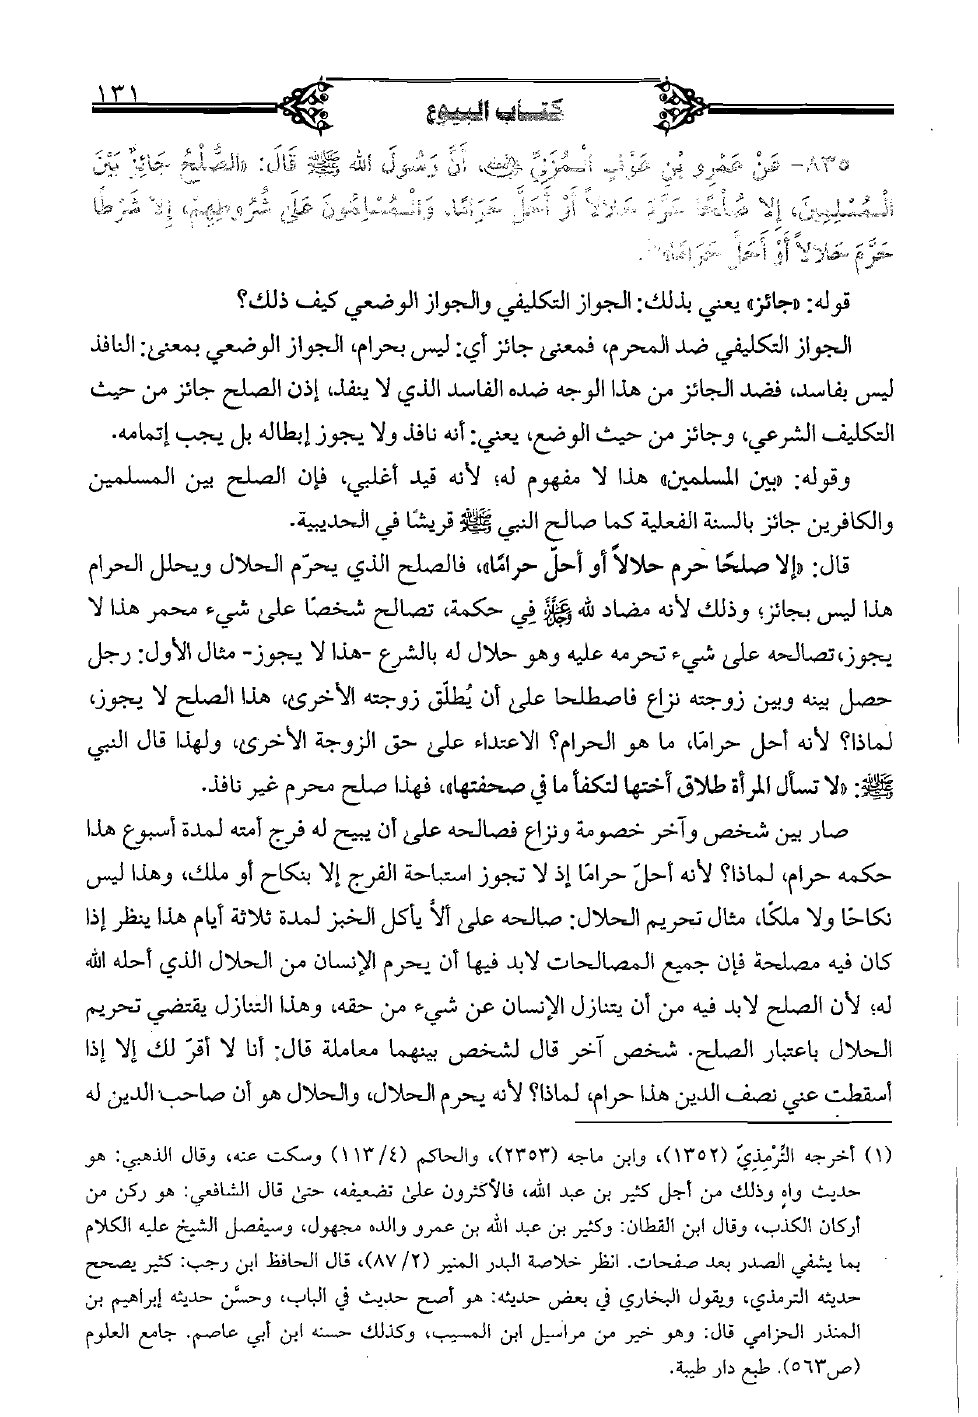 ١٣١
كتاب البيوع
٨٣٥- عَنْ عَمْرِو بْنِ عَوْفٍ الْمُزَنِيِّ ﵁، أَنَّ رَسُولَ الله ﷺ قَالَ: «الصُّلْحُ جَائِزٌ بَيْنَ
الْمُسْلِمِينَ، إِلا صُلْحًا حَرَّمَ حَلالاً أَوْ أَحَلَّ حَرَامًا. وَالْمُسْلِمُونَ عَلَى شُرُوطِهِمْ، إِلا شَرْطًا
حَرَّمَ حَلالاً أَوْ أَحَلَّ حَرَامًا»(١).
قوله: «جائز» يعني بذلك: الجواز التكليفي والجواز الوضعي كيف ذلك؟
الجواز التكليفي ضد المحرم، فمعنى جائز أي: ليس بحرام، الجواز الوضعي بمعنى: النافذ
ليس بفاسد، فضد الجائز من هذا الوجه ضده الفاسد الذي لا ينفذ، إذن الصلح جائز من حيث
التكليف الشرعي، وجائز من حيث الوضع، يعني: أنه نافذ ولا يجوز إبطاله بل يجب إتمامه.
وقوله: «بين المسلمين» هذا لا مفهوم له؛ لأنه قيد أغلبي، فإن الصلح بين المسلمين
والكافرين جائز بالسنة الفعلية كما صالح النبي ﷺ قريشًا في الحديبية.
قال: «إلا صلحًا حرم حلالاً أو أحلّ حرامًا»، فالصلح الذي يحرّم الحلال ويحلل الحرام
هذا ليس بجائز؛ وذلك لأنه مضاد لله ﷻ في حكمة، تصالح شخصًا على شيء محمر هذا لا
يجوز، تصالحه على شيء تحرمه عليه وهو حلال له بالشرع -هذا لا يجوز- مثال الأول: رجل
حصل بينه وبين زوجته نزاع فاصطلحا على أن يُطلّق زوجته الأخرى، هذا الصلح لا يجوز،
لماذا؟ لأنه أحل حرامًا، ما هو الحرام؟ الاعتداء على حق الزوجة الأخرى، ولهذا قال النبي
ﷺ: «لا تسأل المرأة طلاق أختها لتكفأ ما في صحفتها»، فهذا صلح محرم غير نافذ.
صار بين شخص وآخر خصومة ونزاع فصالحه على أن يبيح له فرج أمته لمدة أسبوع هذا
حكمه حرام، لماذا؟ لأنه أحلّ حرامًا إذ لا تجوز استباحة الفرج إلا بنكاح أو ملك، وهذا ليس
نكاحًا ولا ملكًا، مثال تحريم الحلال: صالحه على ألاَّ يأكل الخبز لمدة ثلاثة أيام هذا ينظر إذا
كان فيه مصلحة فإن جميع المصالحات لابد فيها أن يحرم الإنسان من الحلال الذي أحله الله
له؛ لأن الصلح لابد فيه من أن يتنازل الإنسان عن شيء من حقه، وهذا التنازل يقتضي تحريم
الحلال باعتبار الصلح. شخص آخر قال لشخص بينهما معاملة قال: أنا لا أقرّ لك إلا إذا
أسقطت عني نصف الدين هذا حرام، لماذا؟ لأنه يحرم الحلال، والحلال هو أن صاحب الدين له
(١) أخرجه التِّرْمِذِيّ (١٣٥٢)، وابن ماجه (٢٣٥٣)، والحاكم (٤/١١٣) وسكت عنه، وقال الذهبي: هو
حديث واهٍ وذلك من أجل كثير بن عبد الله، فالأكثرون على تضعيفه، حتى قال الشافعي: هو ركن من
أركان الكذب، وقال ابن القطان: وكثير بن عبد الله بن عمرو والده مجهول، وسيفصل الشيخ عليه الكلام
بما يشفي الصدر بعد صفحات. انظر خلاصة البدر المنير (٢/٨٧)، قال الحافظ ابن رجب: كثير يصحح
حديثه الترمذي، ويقول البخاري في بعض حديثه: هو أصح حديث في الباب، وحسَّن حديثه إبراهيم بن
المنذر الحزامي قال: وهو خير من مراسيل ابن المسيب، وكذلك حسنه ابن أبي عاصم. جامع العلوم
(ص٥٦٣). طبع دار طيبة.